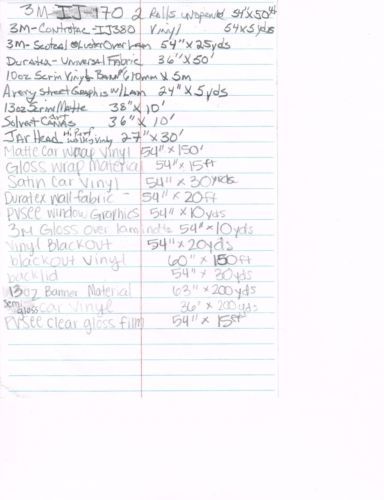 3M-IJ-170 2 Rolls unopened 54"x50yd
3M-Controltac-IJ380 Vinyl 54x5yds
3M-Scotcal Luster Over Lam 54"x25yds
Duratex-Universal Fabric 36"x50'
10oz Scrim Vinyl 610mm x 5m
Avery Street Graphis w/Lam 24"x5yds
13oz Scrim Matte 38"x10'
Solvent Canvas 36"x10'
JAr Head Hi Perf 27"x30'
Matte Car wrap Vinyl 54"x150'
Gloss wrap Material 54"x15ft
Satin Car Vinyl 54"x30yds
Duratex wall fabric - 54"x20ft
PVSEE window Graphics 54"x10yds
3M Gloss over laminate 54"x10yds
Vinyl Blackout 54"x20yds
blackout Vinyl 60"x150ft
backlid 54"x30yds
13oz Banner Material 63"x200yds
semi gloss car vinyle 36'x200yds
PVSEE clear gloss film 54"x15ft